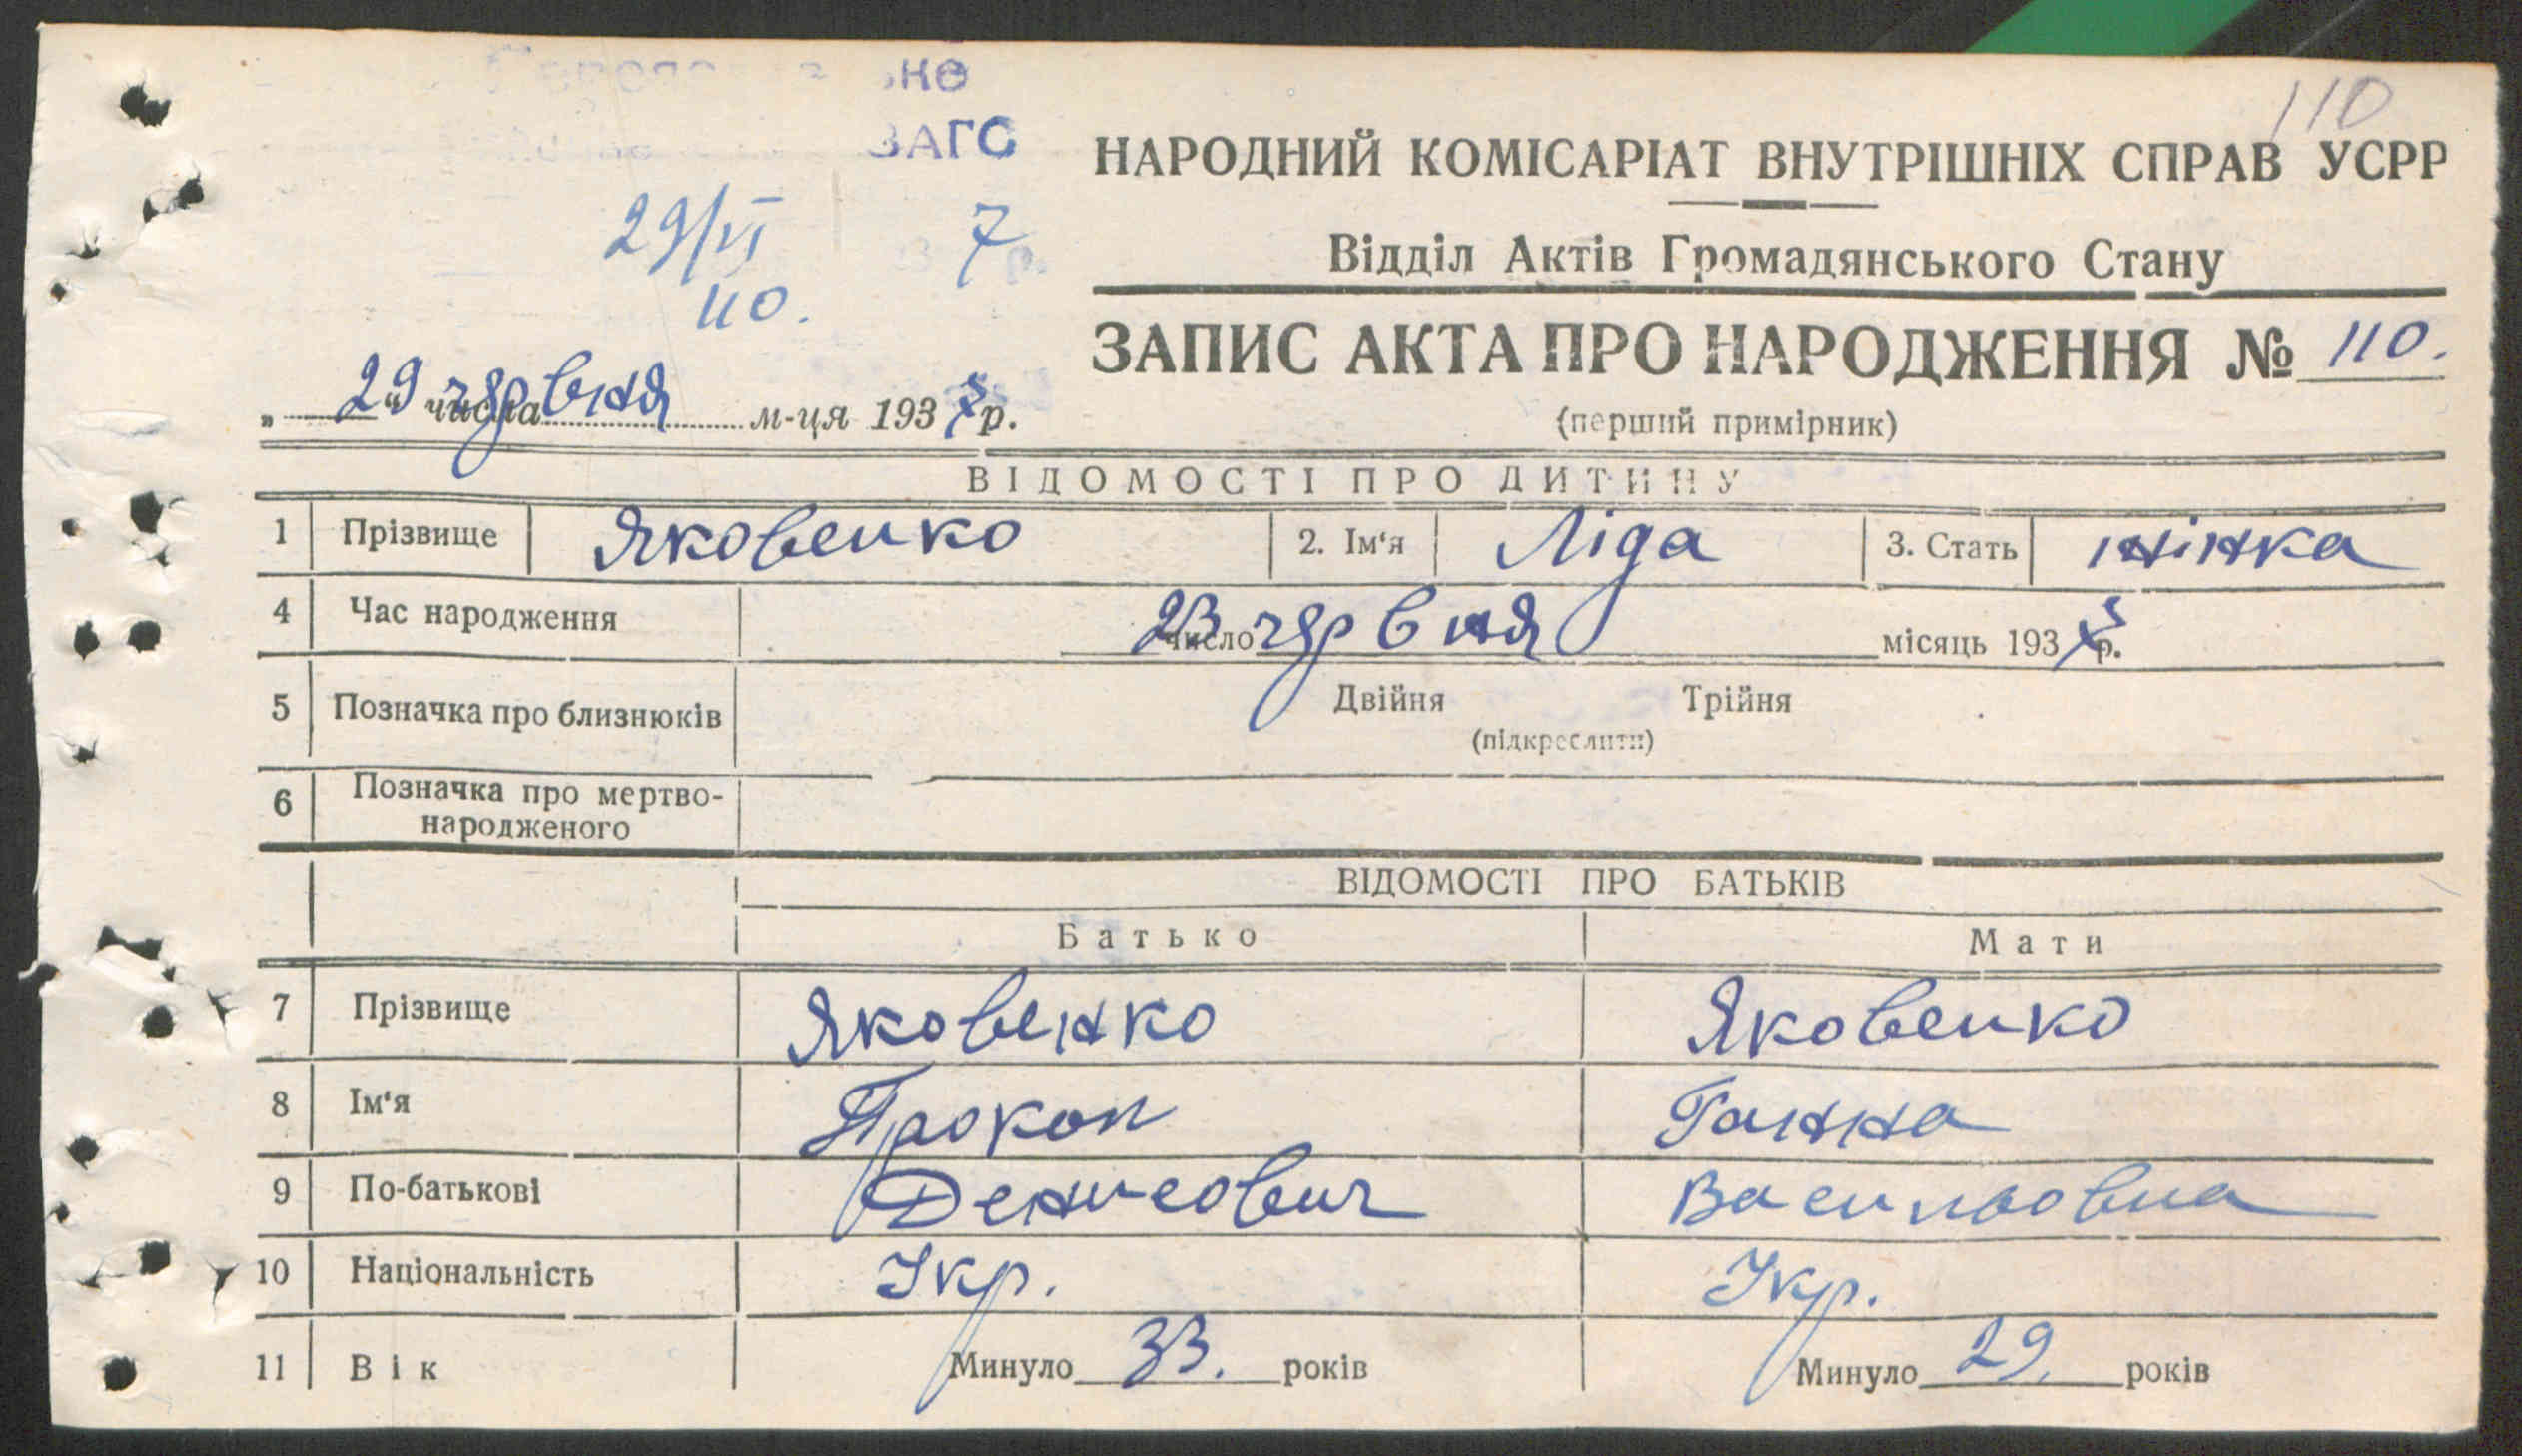 110
ЗАГС
НАРОДНИЙ КОМІСАРІАТ ВНУТРІШНІХ СПРАВ УСРР
29/VI 7
110.
Відділ Актів Громадянського Стану
ЗАПИС АКТА ПРО НАРОДЖЕННЯ № 110.
(перший примірник)
„ 29 “ числа червня м-ця 193 р.
ВІДОМОСТІ ПРО ДИТИНУ
1 Прізвище Яковенко 2. Ім‘я Ліда 3. Стать жінка
4 Час народження 23 число червня місяць 193 р.
5 Позначка про близнюків Двійня Трійня
(підкреслити)
6 Позначка про мертво-
народженого
ВІДОМОСТІ ПРО БАТЬКІВ
Батько Мати
7 Прізвище Яковенко Яковенко
8 Ім‘я Прокоп Ганна
9 По-батькові Денисович Васильовна
10 Національність Укр. Укр.
11 Вік Минуло 33. років Минуло 29. років